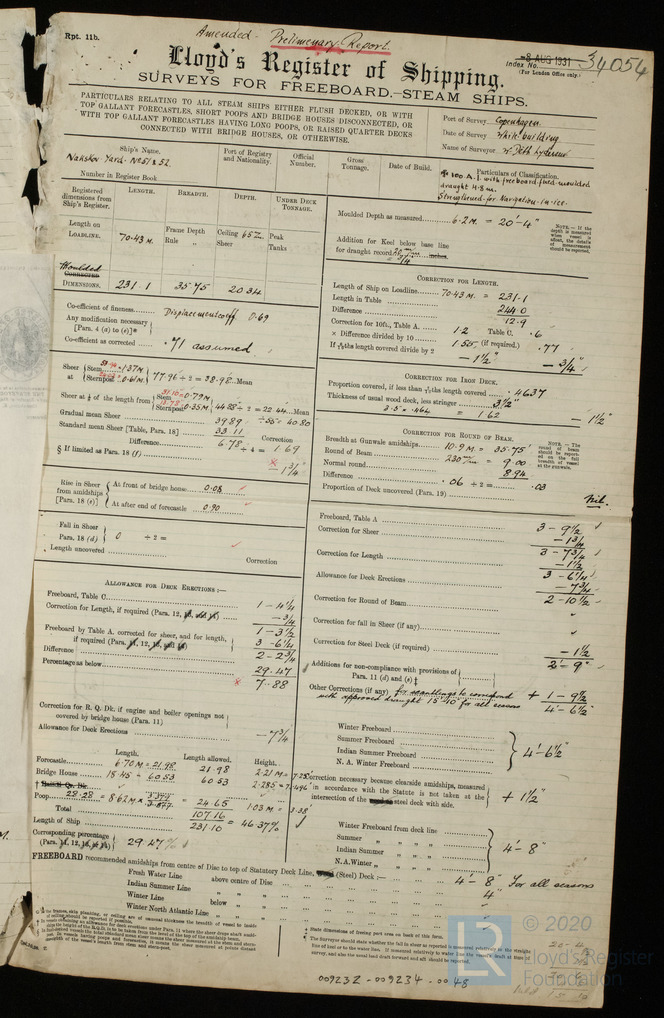 Rpt. 11b.
Amended - Preliminary Report.
8 AUG 1931
Index No. 34054
(For London Office only.)
Lloyd's Register of Shipping.
SURVEYS FOR FREEBOARD.—STEAM SHIPS.
PARTICULARS RELATING TO ALL STEAM SHIPS EITHER FLUSH DECKED, OR WITH
TOP GALLANT FORECASTLES, SHORT POOPS AND BRIDGE HOUSES DISCONNECTED, OR
WITH TOP GALLANT FORECASTLES HAVING LONG POOPS, OR RAISED QUARTER DECKS
CONNECTED WITH BRIDGE HOUSES, OR OTHERWISE.
Port of Survey Copenhagen
Date of Survey While building
Name of Surveyor
Ship's Name.
Port of Registry and Nationality.
Official Number.
Gross Tonnage.
Date of Build.
Particulars of Classification.
Nakskov Yard No 51 & 52.
Number in Register Book
100 A.1. with freeboard
draught 4.8 m.
Strengthened for Navigation in ice.
Registered dimensions from Ship's Register.
LENGTH. BREADTH. DEPTH. UNDER DECK TONNAGE.
Length on LOADLINE. 70.43 M. Frame Depth Rule " Ceiling Sheer Peak Tanks
Moulded
DIMENSIONS. 231.1 35.75 20.34
Co-efficient of fineness Displacement coeff 0.69
Any modification necessary [Para. 4 (a) to (e)]*
Co-efficient as corrected .71 assumed
Sheer at Stem 1.37M. Sternpost 0.61M. 77.96 ÷ 2 = 38.98 Mean
Sheer at ⅛ of the length from Stem 0.79M. Sternpost 0.35M. 44.88 ÷ 2 = 22.44 Mean
Gradual mean Sheer 39.89 ÷ 55 = 40.80
Standard mean Sheer [Table, Para. 18] 33.11
Difference 6.78 ÷ 4 = 1.69 Correction
§ If limited as Para. 18 (f)
- 1¾"
Rise in Sheer from amidships [Para. 18 (e)] At front of bridge house 0.08
At after end of forecastle 0.90
Fall in Sheer Para. 18 (d) 0 ÷ 2 =
Length uncovered
Correction
ALLOWANCE FOR DECK ERECTIONS :—
Freeboard, Table C
Correction for Length, if required (Para. 12, - ¾
1 - 3½
Freeboard by Table A. corrected for sheer, and for length, if required (Para. 12, 3 - 6¼
Difference 2 - 2¾
Percentage as below 29.47
7.88
Correction for R. Q. Dk. if engine and boiler openings not covered by bridge house (Para. 11)
Allowance for Deck Erections - 7¾
Length. Length allowed. Height.
Forecastle 6.70 M = 21.98 21.98 2.21 M =
Bridge House 18.45 = 60.53 60.53 2.285 =
Poop 28.28 = 8.62 M 24.65 1.03 M = 3.38'
Total 107.16
Length of Ship 231.10 = 46.37%
Corresponding percentage (Para. 29.47%
Moulded Depth as measured 6.2 M. = 20'-4"
NOTE.—If the depth is measured when vessel is afloat, the details of measurement should be reported.
Addition for Keel below base line for draught record inches.
CORRECTION FOR LENGTH.
Length of Ship on Loadline 70.43 M. = 231.1
Length in Table 244.0
Difference 12.9
Correction for 10ft., Table A. 1.2 Table C. .6
× Difference divided by 10 1.55 (if required.) .77
If 6/10ths length covered divide by 2 - 1½" - ¾"
CORRECTION FOR IRON DECK.
Proportion covered, if less than 7/10ths length covered .4637
Thickness of usual wood deck, less stringer 3½"
3.5 × .464 = 1.62 - 1½"
CORRECTION FOR ROUND OF BEAM.
Breadth at Gunwale amidships 10.9 M = 35.75'
Round of Beam 230 m/m = 9.00
Normal round 8.94
Difference .06 ÷ 2 = .03
Proportion of Deck uncovered (Para. 19)
Nil.
NOTE.—The round of beam should be reported on the full breadth of vessel at the gunwale.
Freeboard, Table A 3 - 9½
Correction for Sheer - 1¾
3 - 7¾
Correction for Length - 1½
3 - 6¼
Allowance for Deck Erections - 7¾
2 - 10½
Correction for Round of Beam
Correction for fall in Sheer (if any)
Correction for Steel Deck (if required) - 1½
2' - 9"
Additions for non-compliance with provisions of Para. 11 (d) and (e)
Other Corrections (if any) for scantlings to correspond with approved draught 15'-10" for all seasons + 1 - 9½
4' - 6½"
Winter Freeboard
Summer Freeboard
Indian Summer Freeboard
N. A. Winter Freeboard
4' - 6½"
Correction necessary because clearside amidships, measured in accordance with the Statute is not taken at the intersection of the steel deck with side. + 1½"
Winter Freeboard from deck line
Summer " " " "
Indian Summer " " " "
N. A. Winter " " " "
4' - 8"
FREEBOARD recommended amidships from centre of Disc to top of Statutory Deck Line, (Steel) Deck :— 4' - 8" For all seasons
Fresh Water Line above centre of Disc 4"
Indian Summer Line " "
Winter Line below "
Winter North Atlantic Line " "
State dimensions of freeing port area on back of this form.
The Surveyor should state whether the fall in sheer is measured relatively to the straight line of keel or to the water line.
009232 - 009234 - 0048
LR
© 2020
Lloyd's Register
Foundation